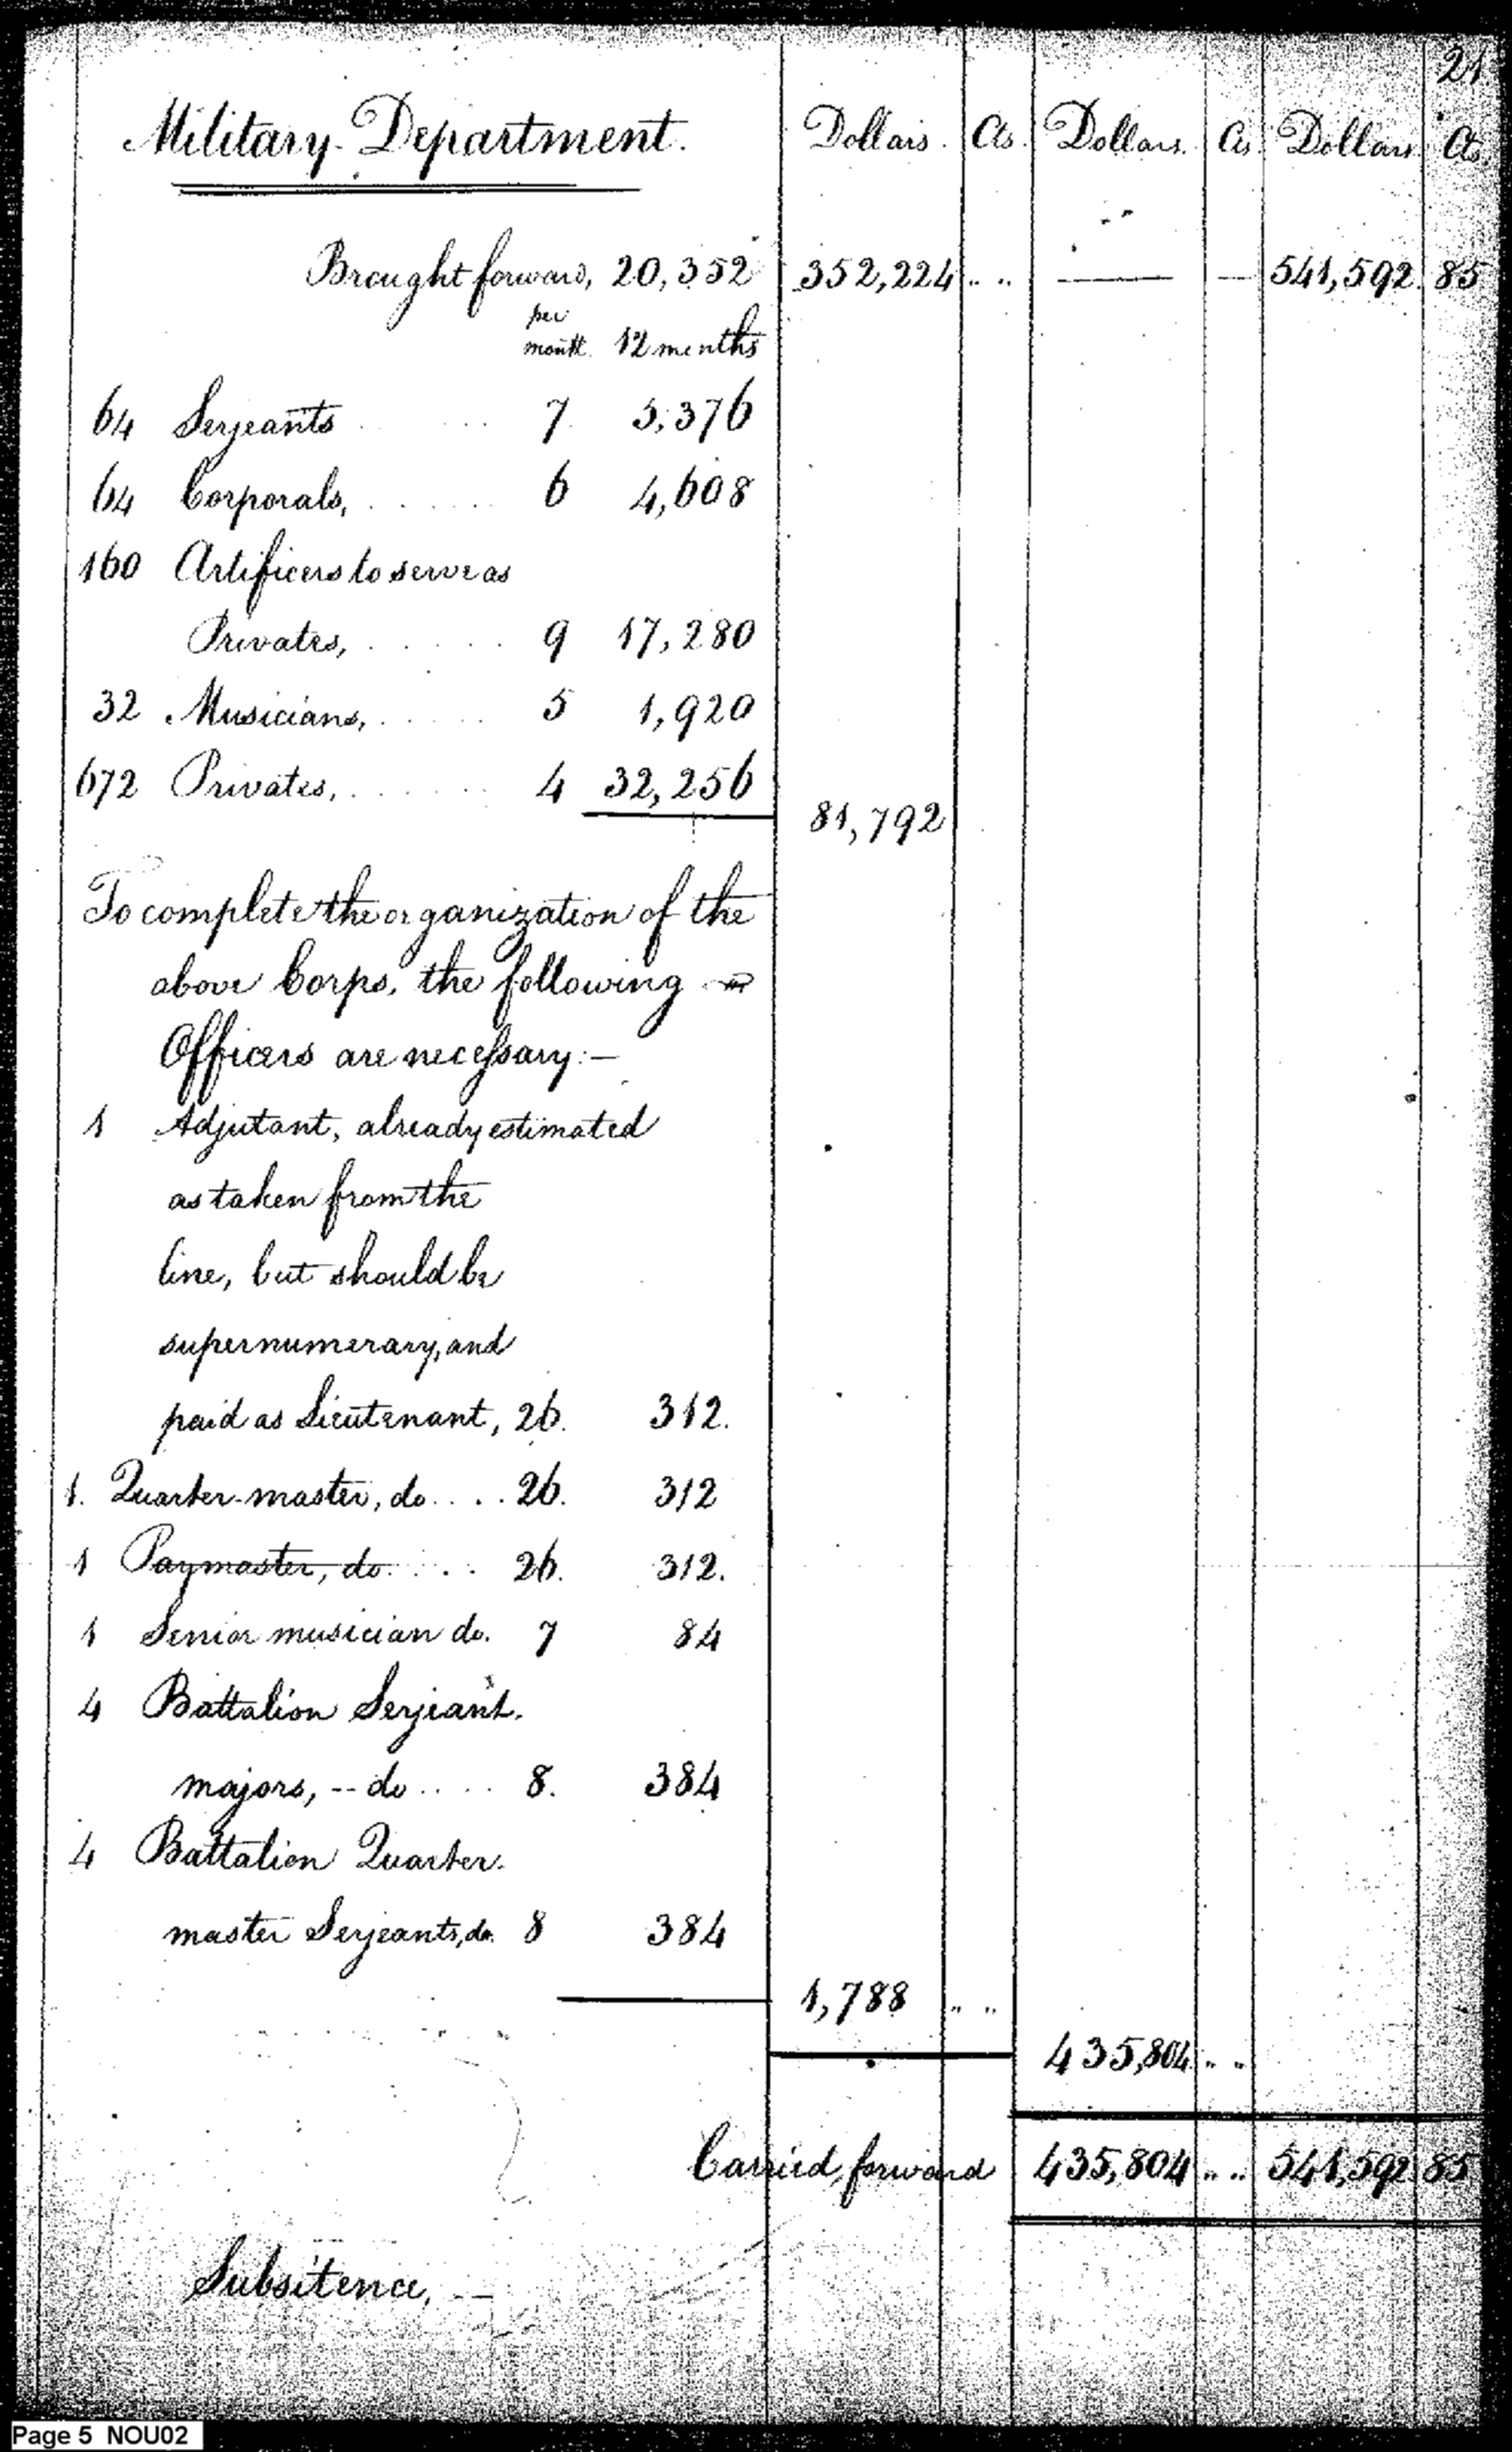 21
Military Department. Dollars. Cts. Dollars. Cts. Dollars. Cts.
Brought forward, 20,352 352,224 .. .. — — 541,592. 85
per
month. 12 months
64 Serjeants 7. 5,376
64 Corporals, 6 4,608
160 Artificers to serve as
Privates, 9 17,280
32 Musicians, 5 1,920
672 Privates, 4 32,256
81,792
To complete the organization of the
above Corps, the following
Officers are necessary:—
1 Adjutant, already estimated
as taken from the
line, but should be
supernumerary, and
paid as Lieutenant, 26. 312.
1. Quarter-master, do.... 26. 312
1 Paymaster, do..... 26. 312.
1 Senior musician do. 7 84
4 Battalion Serjeant-
majors, -- do .... 8. 384
4 Battalion Quarter-
master Serjeants, do. 8 384
1,788 .. ..
435,804 .. ..
Carried forward 435,804 .. .. 541,592 85
Subsitence, —
Page 5 NOU02